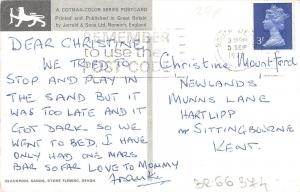 A COTMAN-COLOR SERIES POSTCARD
Printed and Published in Great Britain
by Jarrold & Sons Ltd, Norwich, England
REMEMBER
to use the
POST CODE
5 SEP
DEAR CHRISTINE,
WE TRIED TO
STOP AND PLAY IN
THE SAND BUT IT
WAS TOO LATE AND IT
GOT DARK SO WE
WENT TO BED, I HAVE
ONLY HAD ONE MARS
BAR SO FAR LOVE TO MOMMY
Frankie
Christine Mountford
NEWLANDS
MUNNS LANE
HARTLIPP
Nr SITTINGBOURNE
KENT.
BLACKPOOL SANDS, STOKE FLEMING, DEVON
3266 374